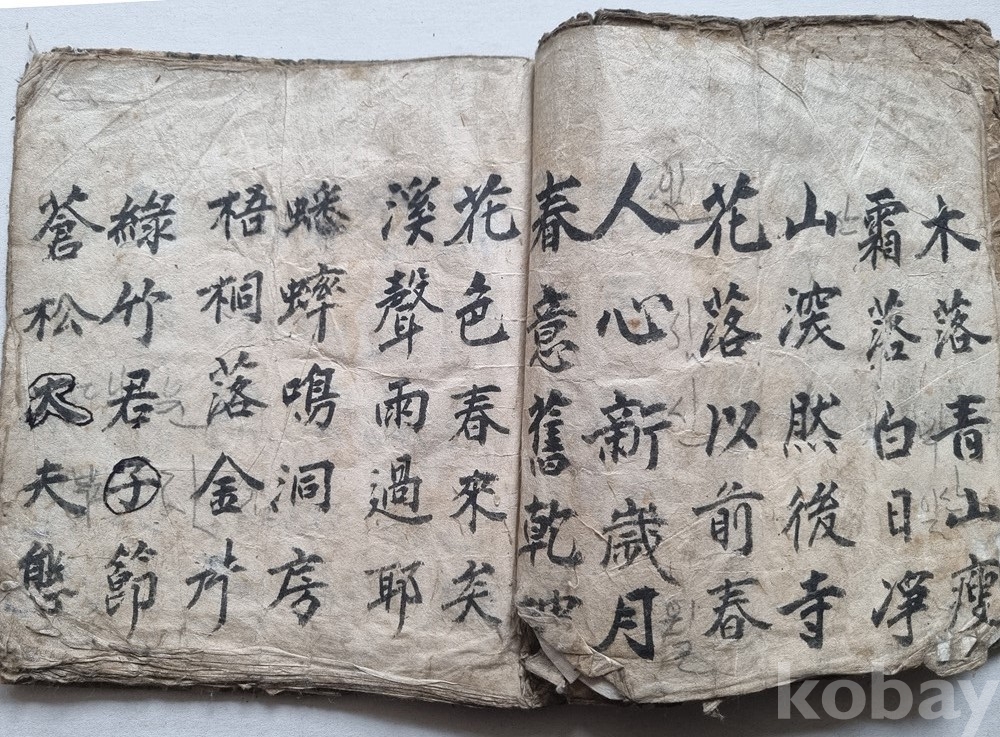 木落青山瘦
霜落白日淨
山深然後寺
花落以前春
人心新歲月
春意舊乾
花色春來矣
溪聲雨過耶
蟀鳴洞房
梧桐落金井
綠竹君子節
蒼松大夫態
kobay